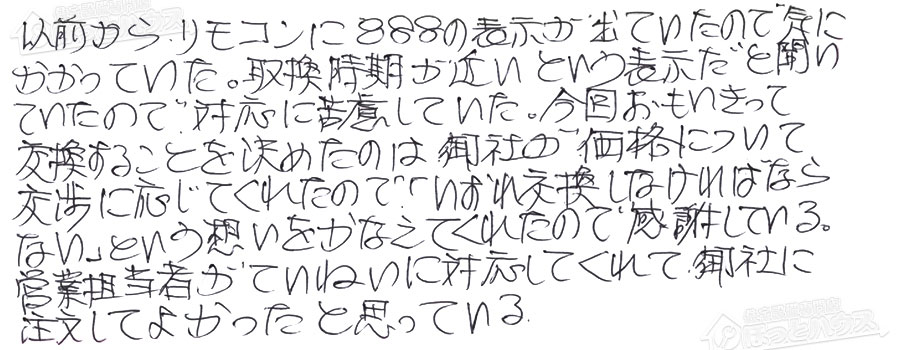 以前からリモコンに888の表示が出ていたので気に
かかっていた。取換時期が近いという表示だと聞い
ていたので対応に苦慮していた。今回おもいきって
交換することを決めたのは御社が価格について
交渉に応じてくれたので「いずれ交換しなければなら
ない」という想いをかなえてくれたので感謝している。
営業担当者がていねいに対応してくれて御社に
注文してよかったと思っている